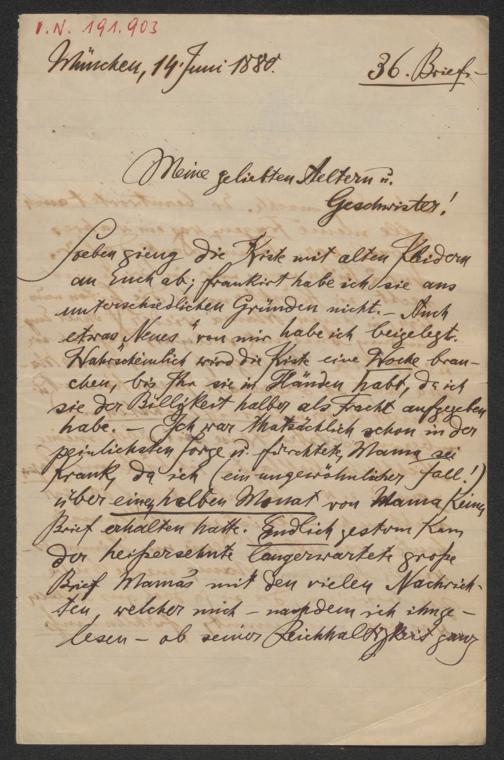 I.N. 191.903
München, 14. Juni 1880.
36. Brief.-
Meine geliebten Aeltern u.
Geschwister!
Soeben gieng die Kiste mit alten Kleidern
an Euch ab; frankirt habe ich sie aus
unterschiedlichen Gründen nicht. - Auch
etwas "Neues" von mir habe ich beigelegt.
Wahrscheinlich wird die Kiste eine Woche brau-
chen, bis Ihr sie in Händen habt, da ich
sie der Billigkeit halber als Fracht aufgegeben
habe. - Ich war thatsächlich schon in der
peinlichsten Sorge u. fürchtete, Mama sei
krank, da ich (ein ungewöhnlicher Fall!)
über einen halben Monat von Mama keinen
Brief erhalten hatte. Endlich gestern kam
der heißersehnte langerwartete große
Brief Mama's mit den vielen Nachrich-
ten, welcher mich - nachdem ich ihn ge-
lesen - ob seiner Reichhaltigkeit ganz